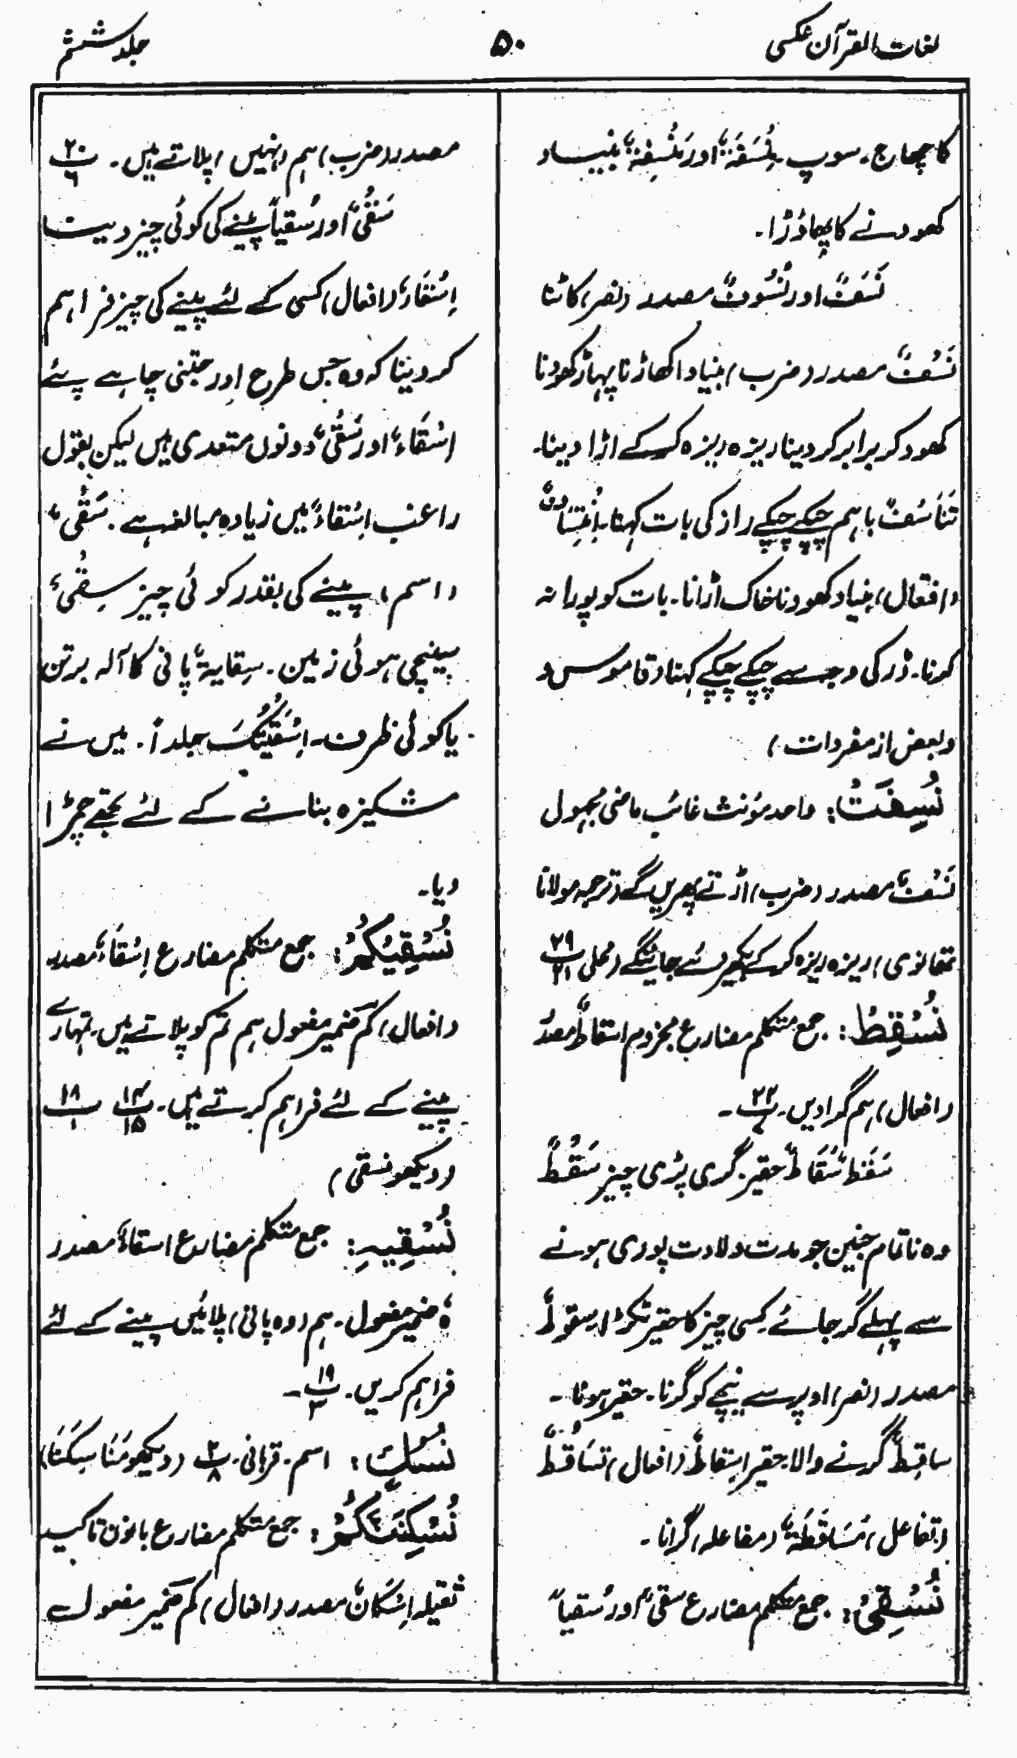 لغات القرآن عکسی
۵۰
جلد ششم
کا چھاج۔ سوپ۔ مِنْسَفَۃٌ اور مَنْسِفَۃٌ بنیاد
کھودنے کا پھاوڑا۔
نَسَفٌ اور نُسُوفٌ مصدر (نصر) کاٹنا
نَسْفٌ مصدر (ضرب) بنیاد اکھاڑنا پہاڑ کھودنا
کھود کر برابر کر دینا ریزہ ریزہ کر کے اڑا دینا۔
تَنَاسُفٌ باہم چپکے چپکے راز کی بات کہنا
(افتعال) بنیاد کھودنا خاک اڑانا۔ بات کو پورا نہ
کرنا۔ ڈر کی وجہ سے چپکے چپکے کہنا (قاموس و
وبعض از مفردات)
نُسِفَتْ: واحد مؤنث غائب ماضی مجہول
نَسْفٌ مصدر (ضرب) اڑتے پھریں گے (ترجمہ مولانا
تھانوی) ریزہ ریزہ کر کے بکھیر دئے جائینگے (محلی) ۲۹/۲۱
نُسْقِطْ: جمع متکلم مضارع مجزوم اسقاطٌ مصدر
(افعال) ہم گرادیں۔ ۲۲/۷۔
سَقَطٌ سُقَاطٌ حقیر۔ گری پڑی چیز سَقْطٌ
وہ ناتمام جنین جو مدت ولادت پوری ہونے
سے پہلے گر جائے کسی چیز کا حقیر ٹکڑا۔ سقوطٌ
مصدر (نصر) اوپر سے نیچے کو گرنا۔ حقیر ہونا۔
ساقِطٌ گرنے والا۔ حقیر اِسْقاطٌ (افعال) تَسَاقُطٌ
(تفاعل) مُسَاقَطَۃٌ (مفاعلہ) گرانا۔
نُسْقِیْ: جمع متکلم مضارع سقیٌ اور سُقیاً
مصدر (ضرب) ہم (نہیں) پلاتے ہیں۔ ۲۰/۶
سَقْیٌ اور سُقیاً پینے کی کوئی چیز دینا
اِسْقَاءٌ (افعال) کسی کے لئے پینے کی چیز فراہم
کر دینا کہ وہ جس طرح اور جتنی چاہے پئے
اسْقَاءٌ اور سَقْیٌ دونوں متعدی ہیں لیکن بقول
راغب اسْقاءٌ میں زیادہ مبالغہ ہے۔ سَقْیٌ
(اسم) پینے کی بقدر کوئی چیز سِقْیٌ
سینچی ہوئی زمین۔ سِقایۃٌ پانی کا آلہ برتن
یا کوئی ظرف۔ اسْقَیْتُکَ جلداً۔ میں نے
مشکیزہ بنانے کے لئے تجھے چمڑا
دیا۔
نُسْقِیْکُمْ: جمع متکلم مضارع اِسْقَاءٌ مصدر
(افعال) کُم ضمیر مفعول ہم تم کو پلاتے ہیں۔ تمہارے
پینے کے لئے فراہم کرتے ہیں۔ ۱۴/۱۵ ۱۸/۱
(دیکھو نسقی)
نُسْقِیَہٗ: جمع متکلم مضارع اسقاءٌ مصدر
ہٗ ضمیر مفعول۔ ہم (وہ پانی) پلائیں پینے کے لئے
فراہم کریں۔ ۱۹/۳۔
نُسُكٍ: اسم۔ قربانی۔ ۲/۸ (دیکھو مَنَاسِکَنَا)
نُسْکِنَنَّکُمْ: جمع متکلم مضارع بانون تاکید
ثقیلہ اِسْکَانٌ مصدر (افعال) کُم ضمیر مفعول۔